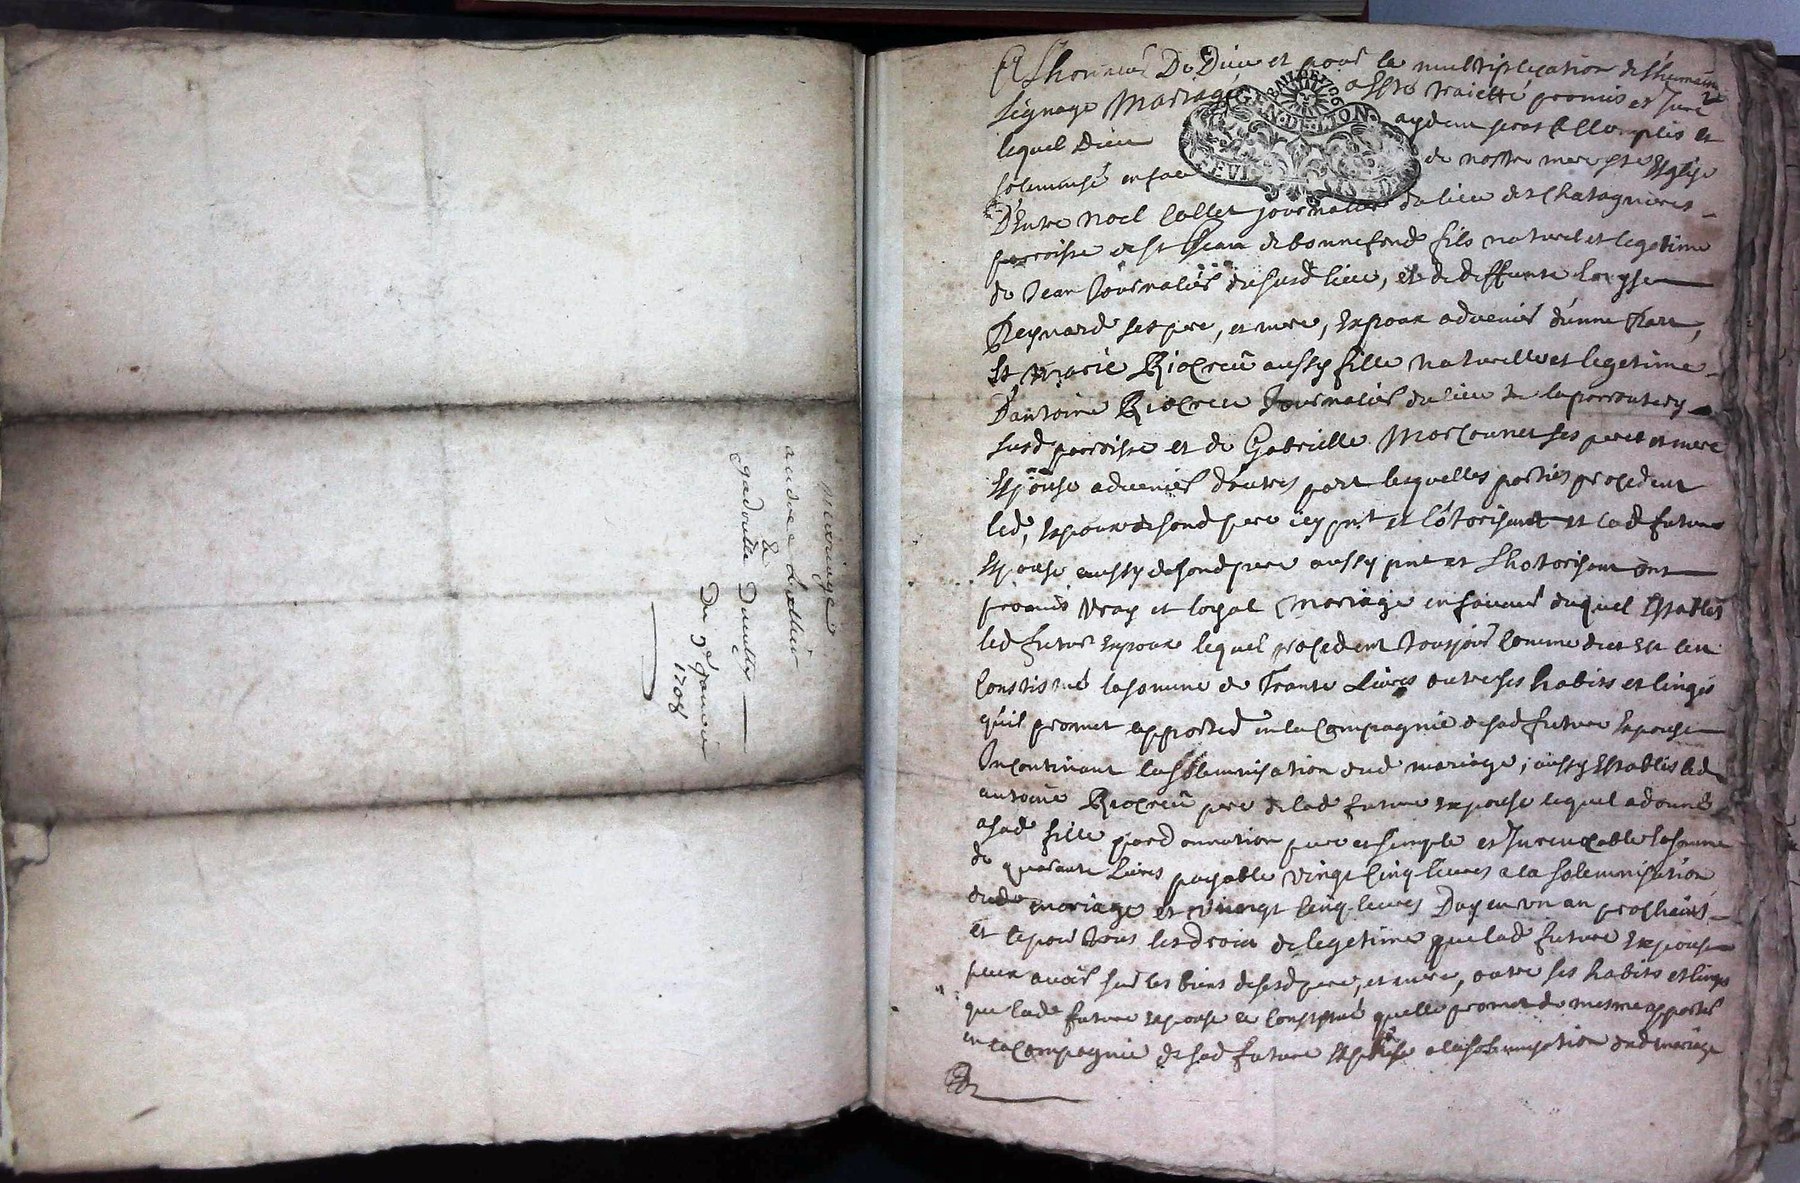 mariage
andre
&
gabrielle
Du 9e Janvier
1708
A Lhonneur De Dieu et pour la multiplication de Lhumain
Lignage Mariage a esté traitté promis et Juré
lequel Dieu aydant sera accomplis et
solemnisé en face de nostre mere ste Esglize
GEN·DE·LION
D'Entre noel Collet journalier du lieu des Chatagniers
parroisse de st Jean de bonnefond fils naturel et legetime
de Jean Journalier dususd lieu, et de deffunte
Reynard ses pere, et mere, Espoux advenir d'une Part,
Et Marie Riocreu aussy fille naturelle et legetime
D'antoine Riocreu Journalier du lieu de
susd parroisse et de Gabrielle Marcounet ses pere et mere
Espouse advenir d'autre part lesquelles parties procedent
led, Espoux desond pere icy pnt et L'otorisant et lad future
Espouse aussy desond pere aussy pnt et Lhotorisant ont
promis vray et loyal Mariage en faveur duquel Establis
led futur Espoux lequel procedent tousjour comme dict est cest
Constitué la somme de Trante Livres outre ses habits et linges
quil promet apporter en la Compagnie desad future Espouse
Incontinant la solemnisation dud mariage, aussy Establis led
antoine Riocreu pere delad future Espouse lequel a donné
asad fille par donnation pure et simple et Jrrevocable la somme
de quarante Livres payable vingt cinq livres a la solemnisation
dud mariage et vingt cinq livres Duy en un an prochains
et ce pour tous les droict de legetime que lad future Espouse
peux avoir sur les biens desesd pere, et mere, outre ses habits et linges
que lade future Espouse ce constitué quelle promet de mesme apporter
en la Compagnie desad future Espouse a la solemnisation dud mariage